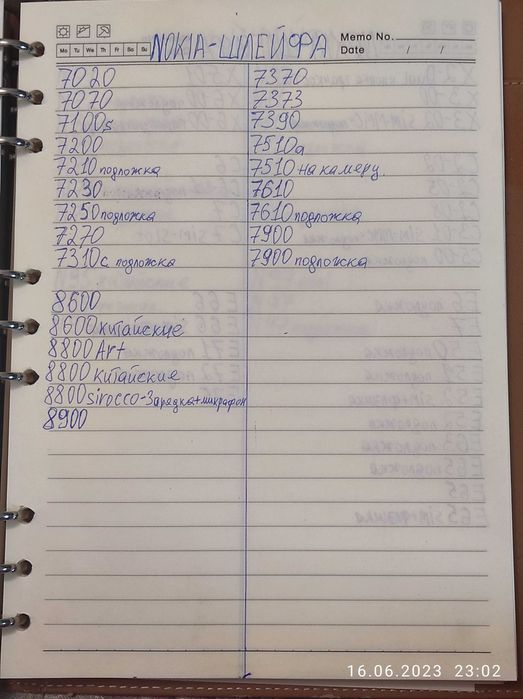 NOKIA-ШЛЕЙФА
Memo No.
Mo Tu We Th Fr Sa Su
Date / /
7020
7070
7100s
7200
7210 подложка
7230
7250 подложка
7270
7310c подложка
8600
8600 китайские
8800 Art
8800 китайские
8800 sirocco-Зарядка+микрафон
8900
7370
7373
7390
7510a
7510 на камеру.
7610
7610 подложка
7900
7900 подложка
16.06.2023 23:02